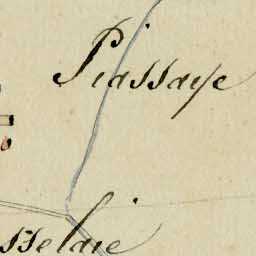 Piassaye
sselaie